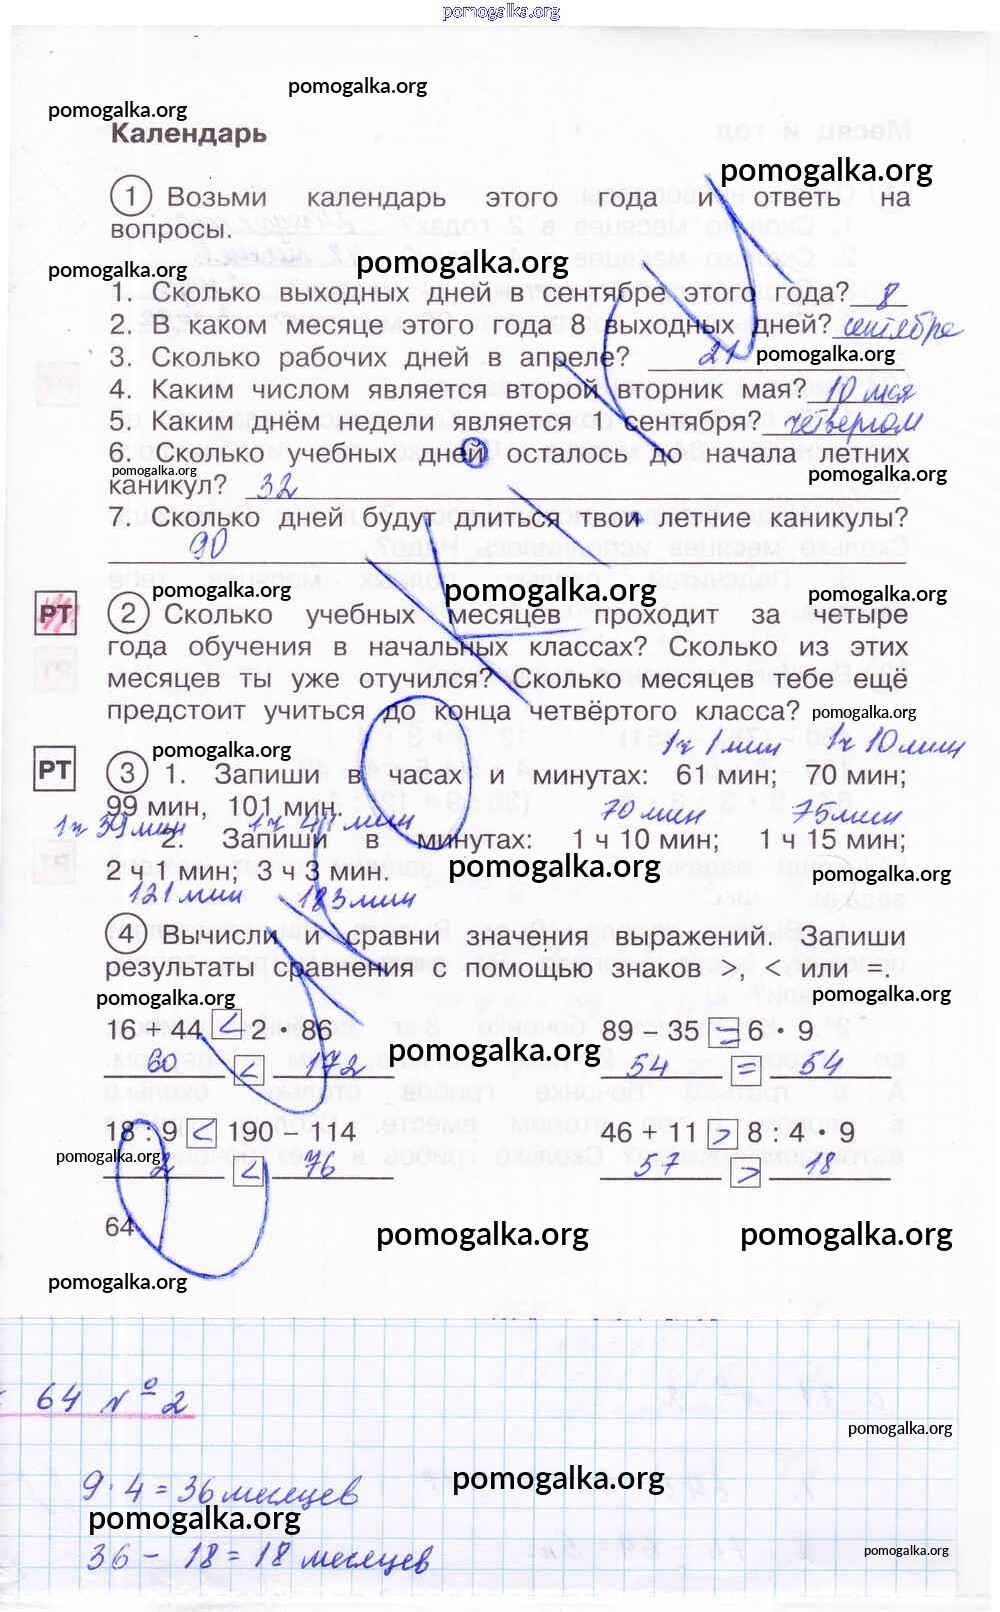 pomogalka.org
pomogalka.org
pomogalka.org
Календарь
pomogalka.org
1 Возьми календарь этого года и ответь на
вопросы.
pomogalka.org
pomogalka.org
1. Сколько выходных дней в сентябре этого года? 8
2. В каком месяце этого года 8 выходных дней? сентябре
3. Сколько рабочих дней в апреле? 21
pomogalka.org
4. Каким числом является второй вторник мая? 10 мая
5. Каким днём недели является 1 сентября? четвергом
6. Сколько учебных дней осталось до начала летних
pomogalka.org
pomogalka.org
каникул? 32
7. Сколько дней будут длиться твои летние каникулы?
90
pomogalka.org
pomogalka.org
pomogalka.org
РТ 2 Сколько учебных месяцев проходит за четыре
года обучения в начальных классах? Сколько из этих
месяцев ты уже отучился? Сколько месяцев тебе ещё
предстоит учиться до конца четвёртого класса?
pomogalka.org
pomogalka.org
1ч 1 мин 1ч 10 мин
РТ 3 1. Запиши в часах и минутах: 61 мин; 70 мин;
99 мин, 101 мин.
1ч 39 мин 1ч 41 мин 70 мин 75 мин
2. Запиши в минутах: 1 ч 10 мин; 1 ч 15 мин;
2 ч 1 мин; 3 ч 3 мин.
pomogalka.org
pomogalka.org
121 мин 183 мин
4 Вычисли и сравни значения выражений. Запиши
результаты сравнения с помощью знаков >, < или =.
pomogalka.org
pomogalka.org
16 + 44 < 2 • 86 89 – 35 = 6 • 9
pomogalka.org
60 < 172 54 = 54
18 : 9 < 190 – 114 46 + 11 > 8 : 4 • 9
pomogalka.org
2 < 76 57 > 18
64
pomogalka.org
pomogalka.org
pomogalka.org
64 № 2
pomogalka.org
9 · 4 = 36 месяцев
pomogalka.org
pomogalka.org
36 - 18 = 18 месяцев
pomogalka.org